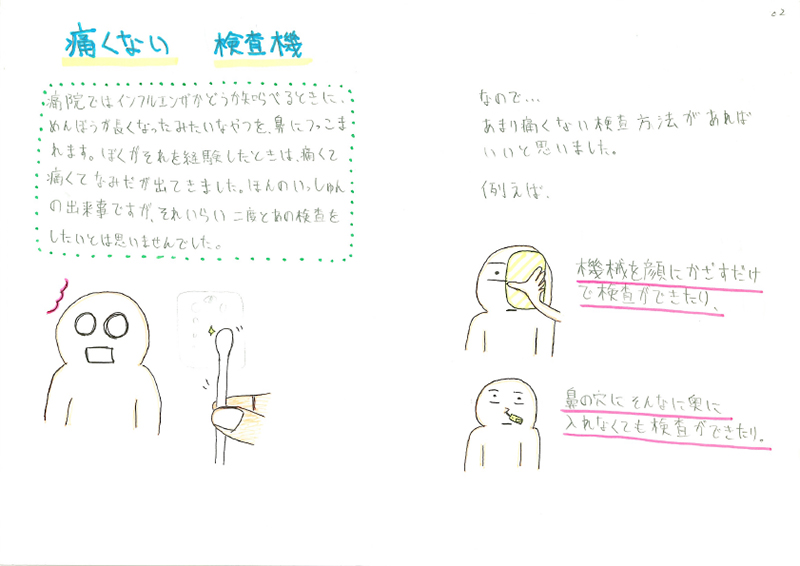 c2
痛くない 検査機
病院ではインフルエンザかどうか知らべるときに、
めんぼうが長くなったみたいなやつを、鼻につっこま
れます。ぼくがそれを経験したときは、痛くて
痛くてなみだが出てきました。ほんのいっしゅん
の出来事ですが、それいらい二度とあの検査を
したいとは思いませんでした。
なので…
あまり痛くない検査方法があれば
いいと思いました。
例えば、
機械を顔にかざすだけ
で検査ができたり、
鼻の穴にそんなに奥に
入れなくても検査ができたり。